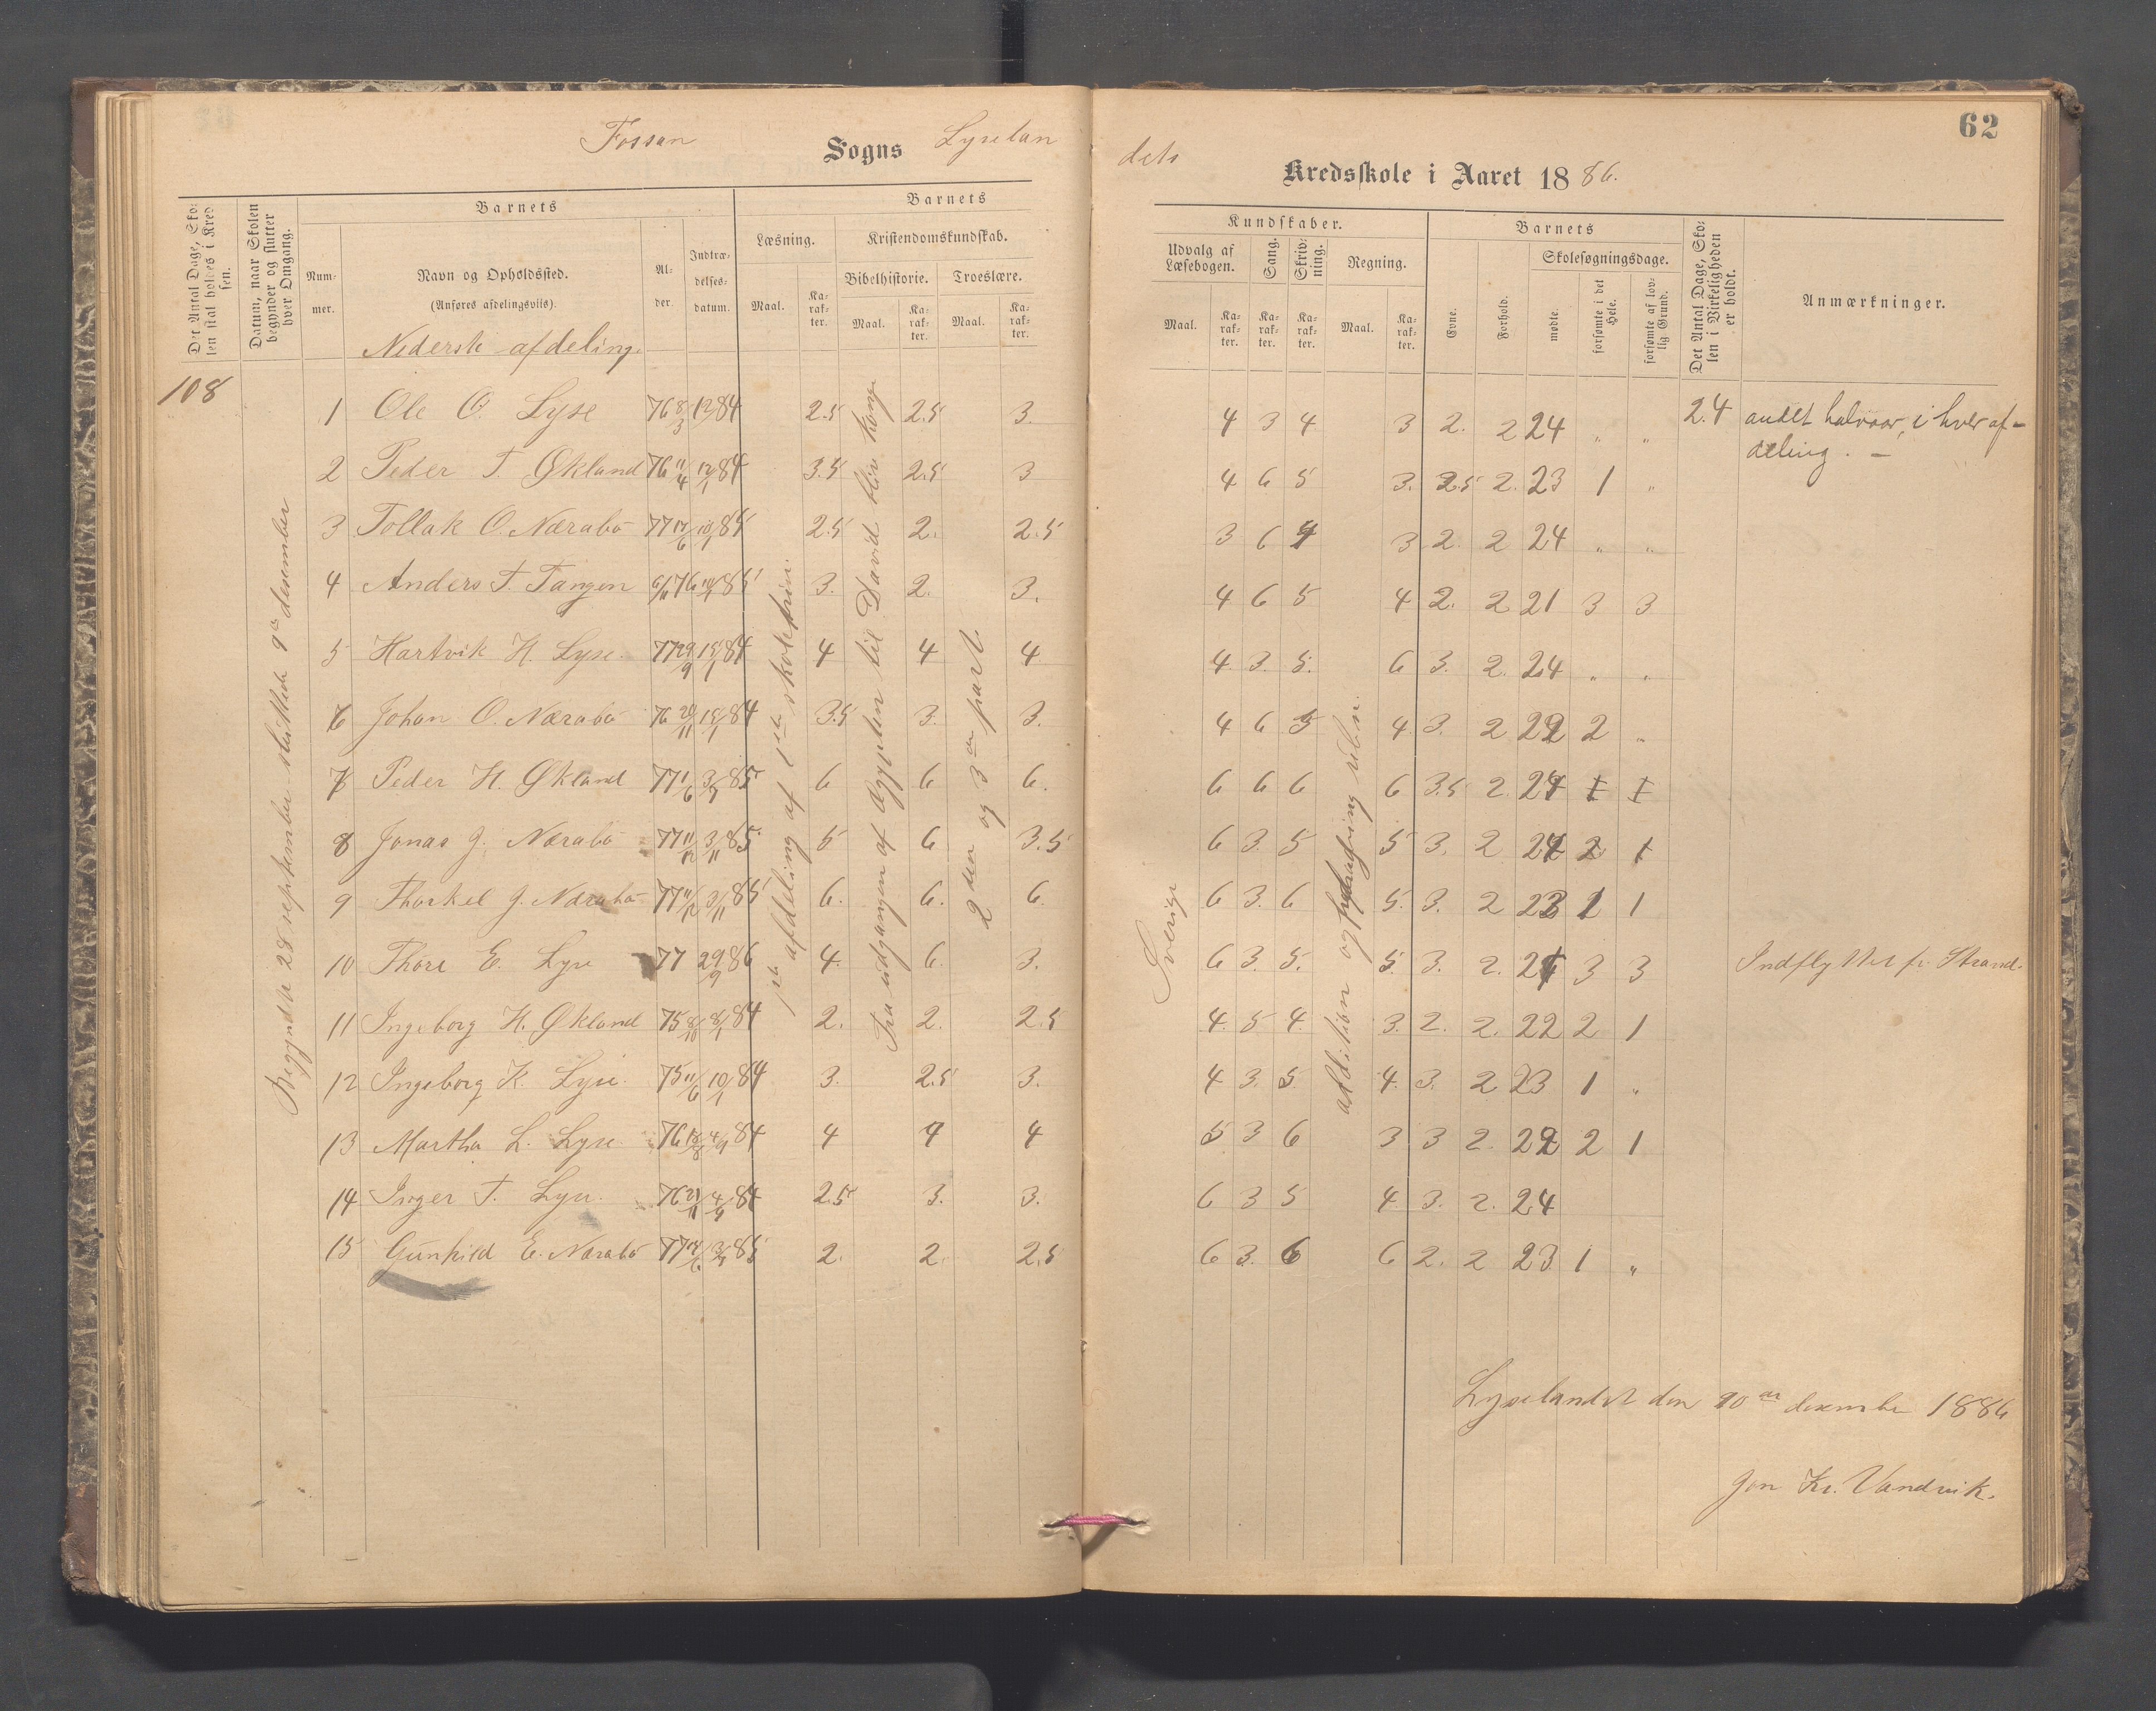 62
Fossan Sogns Lyselan
dets Kredsskole i Aaret 1886.
Det Antal Dage, Skolen skal holdes i Kredsen.
Datum, naar Skolen begynder og slutter hver Omgang.
Barnets
Nummer.
Navn og Opholdssted.
(Anføres afdelingsvils).
Alder.
Indtrædelsesdatum.
Barnets
Læsning.
Maal.
Karakter.
Kristendomskundskab.
Bibelhistorie.
Maal.
Karakter.
Troeslære.
Maal.
Karakter.
Kundskaber.
Udvalg af Læsebogen.
Maal.
Karakter.
Sang.
Karakter.
Skrivning.
Karakter.
Regning.
Maal.
Karakter.
Barnets
Evne.
Forhold.
Skolesøgningsdage.
mødte.
forsømte i det Hele.
forsømte af lovlig Grund.
Det Antal Dage, Skolen i Virkeligheden er holdt.
Anmærkninger.
Nederste afdeling.
108
Begyndte 28 september sluttede 9de desember
1ste afdeling af 1ste skoletrin.
Fra udgangen af Ægypten til David blive konge
2den og 3die part
Sverige
addition og
1 Ole O. Lyse 76 8/3 12/1 84 2.5 2.5 3. 4 3 4 3 2. 2 24 „ „ 24 andet halvaar, i hver af-
deling. –
2 Peder T. Økland 76 11/4 12/1 84 3.5 2.5 3 4 6 5 3. 2.5 2. 23 1 „
3 Tollak O. Nærabø 77 17/6 10/1 85 2.5 2. 2.5 3 6 4 3 2. 2 24 „ „
4 Anders T. Tangen 6/6 76 10/1 85 3. 2. 3. 4 6 5 4 2. 2 21 3 3
5 Hartvik H. Lyse 77 29/9 15/1 84 4 4 4 4 3. 5. 6 3. 2. 24 „ „
6 Johan O. Nærabø 76 29/11 15/1 84 3.5 3. 3. 4 6 5 4. 3. 2 22 2 „
7 Peder H. Økland 77 1/6 3/9 85 6 6 6. 6 6 6 6 3.5 2. 24 1 1
8 Jonas J. Nærabø 77 11/12 3/11 85 5 6 3.5 6 3. 5 5 3. 2 24 2 1
9 Thorkel J. Nærabø 77 11/12 3/11 85 6. 6. 6. 6 3. 6 5. 3. 2 23 1 1
10 Thore E. Lyse 77 29/9 86 4. 6. 3. 6 3. 5. 5. 3. 2. 21 3 3 Indflyttet fr. Strand.
11 Ingeborg H. Økland 75 8/10 8/1 84 2. 2. 2.5 4. 5 4. 3. 2. 2. 22 2 1
12 Ingeborg K. Lyse 75 11/6 10/1 84 3. 2.5 3. 4 3. 5. 4. 3. 2 23 1 „
13 Martha L. Lyse 76 18/8 4/9 84 4 4 4 5 3 6 3 3 2. 22 2 1
14 Inger T. Lyse 76 21/11 4/9 84 2.5 3. 3. 6 3 5 4. 3. 2. 24
15 Gunhild E. Nærabø 77 85 2. 2. 2.5 6 3. 6 6 2. 2 23 1 „
Lyselandet den 10de desember 1886
Jon Kr. Vandvik.